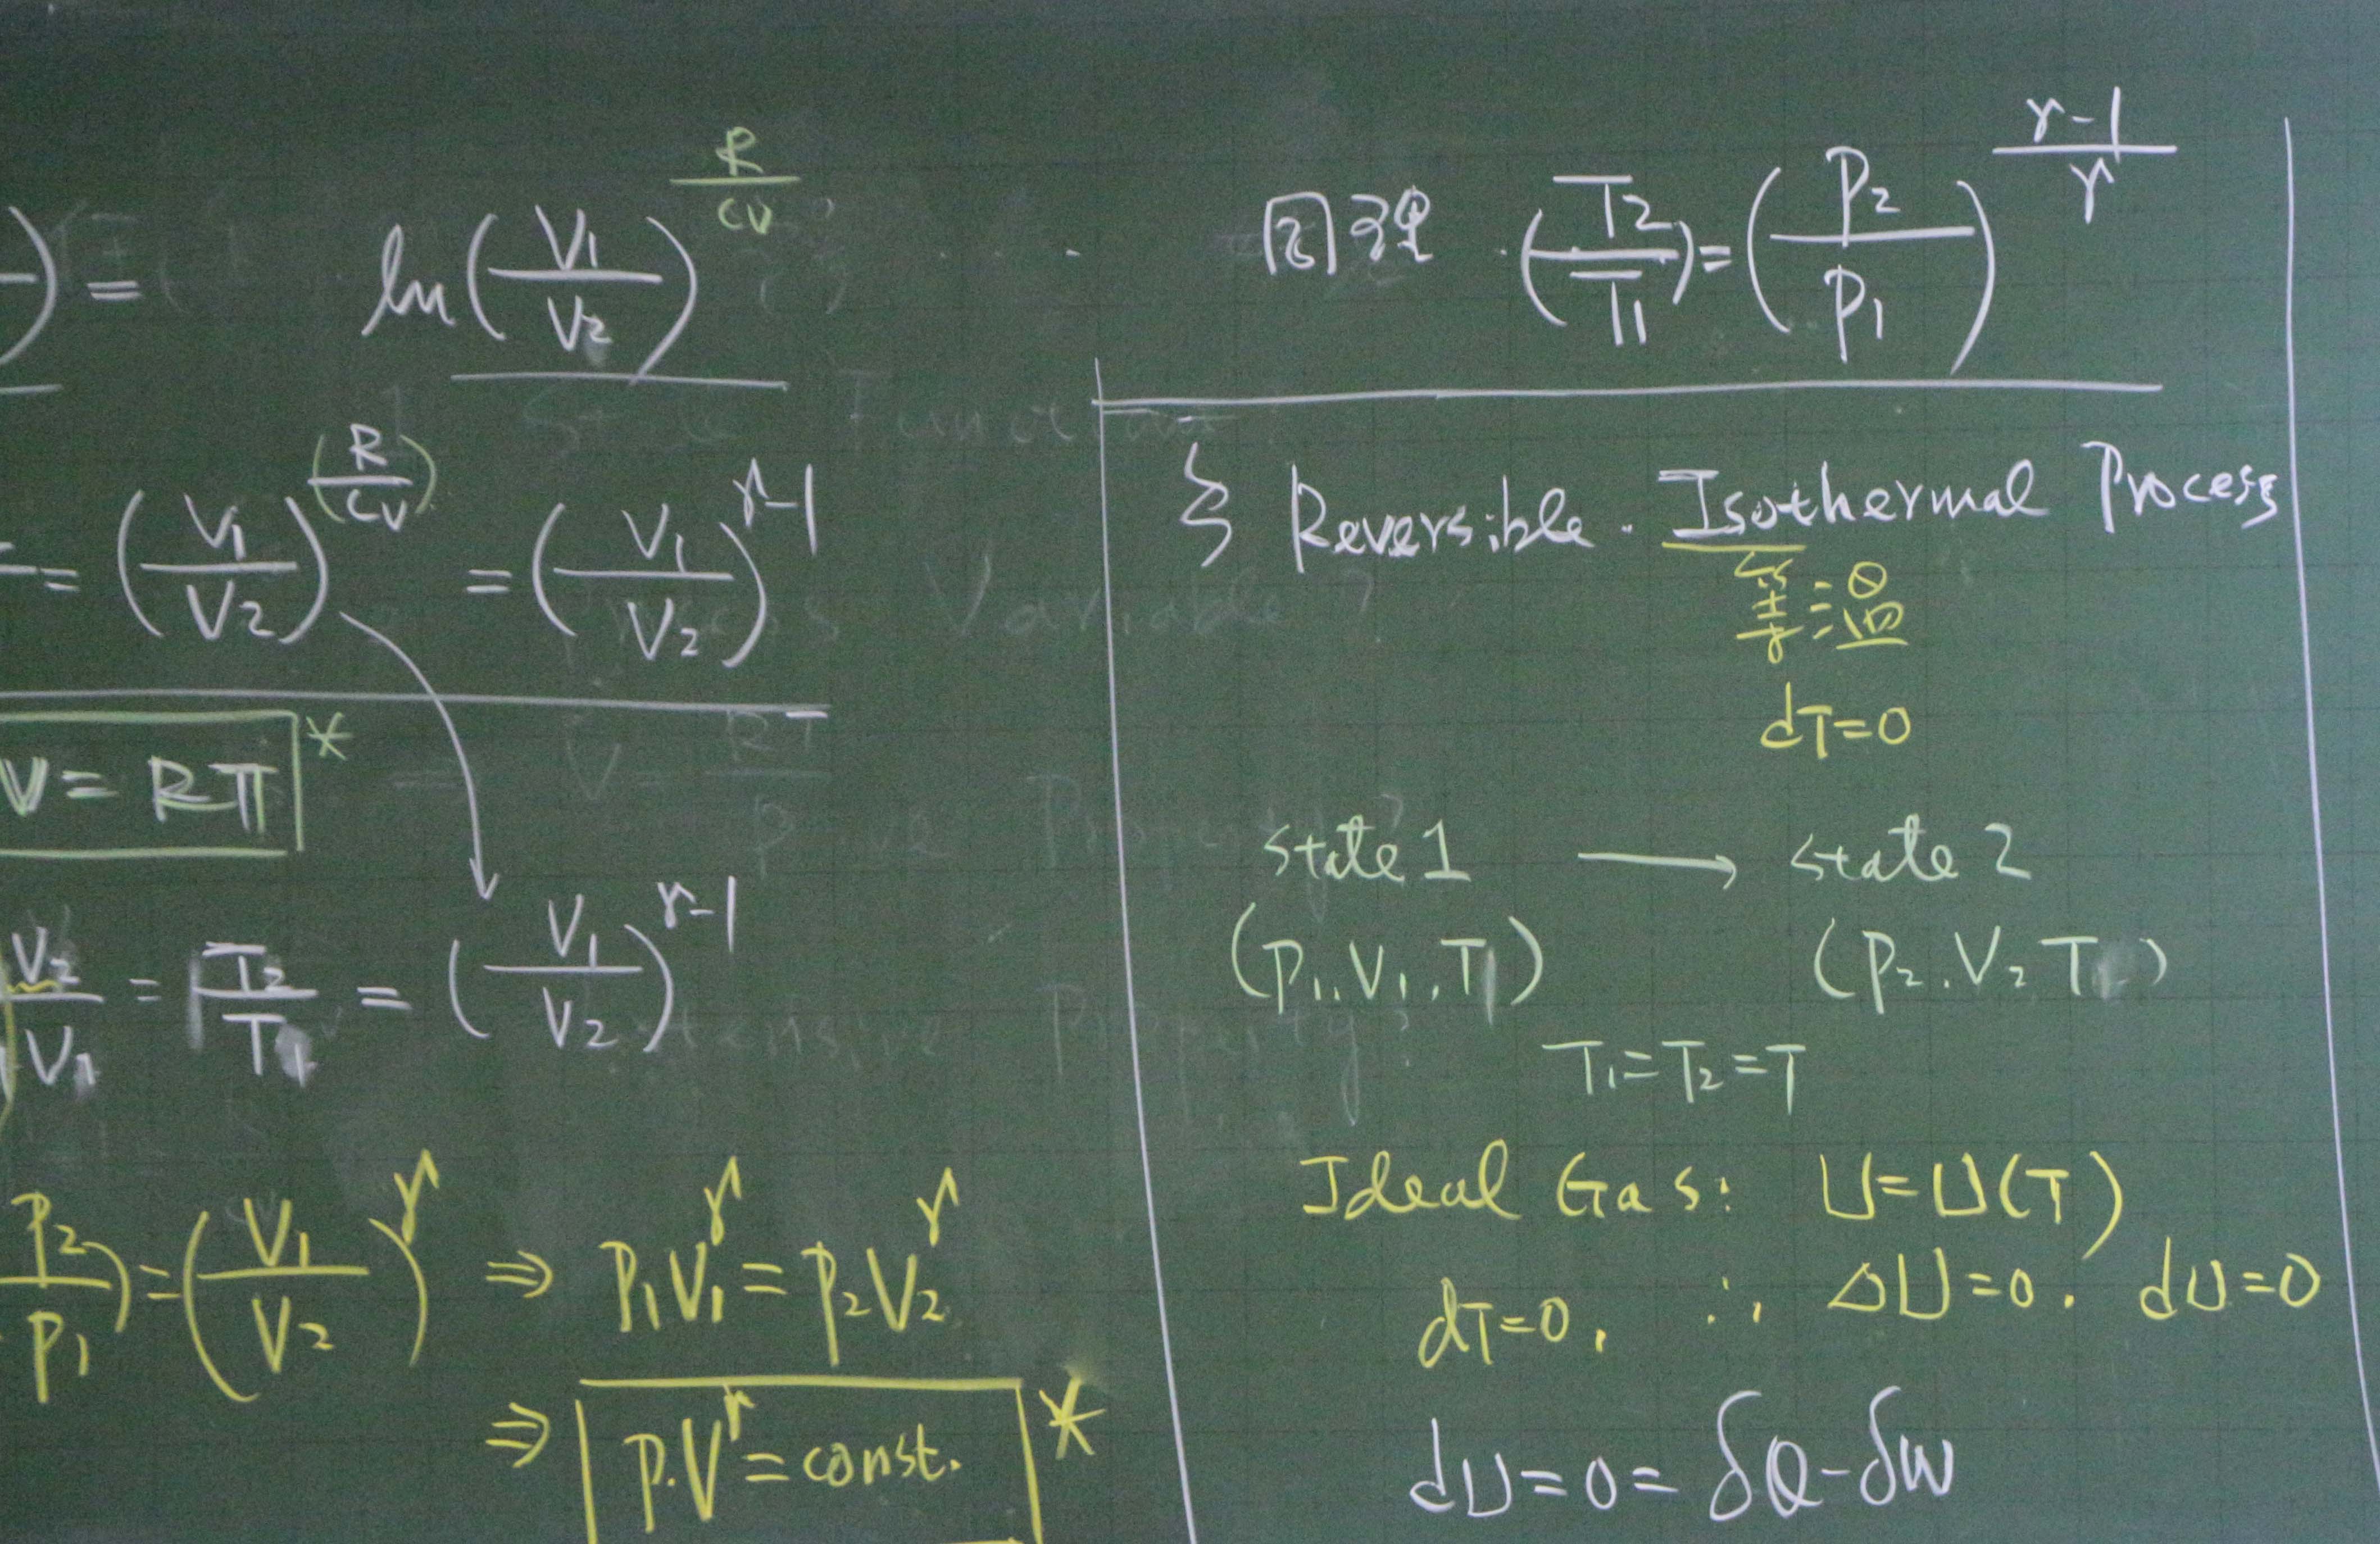 ) = ln(V1/V2)^(R/CV)
= (V1/V2)^(R/CV) = (V1/V2)^(r-1)
V = RT *
V2/V1 = T2/T1 = (V1/V2)^(r-1)
P2/P1) = (V1/V2)^r ⇒ P1V1^r = P2V2^r
⇒ P.V^r = const. *
同理 (T2/T1) = (P2/P1)^((r-1)/r)
§ Reversible. Isothermal Process
等溫
dT=0
state 1 → state 2
(P1, V1, T) (P2. V2 T )
T1=T2=T
Ideal Gas: U=U(T)
dT=0, ∴ ΔU=0. dU=0
dU=0= δQ-δW